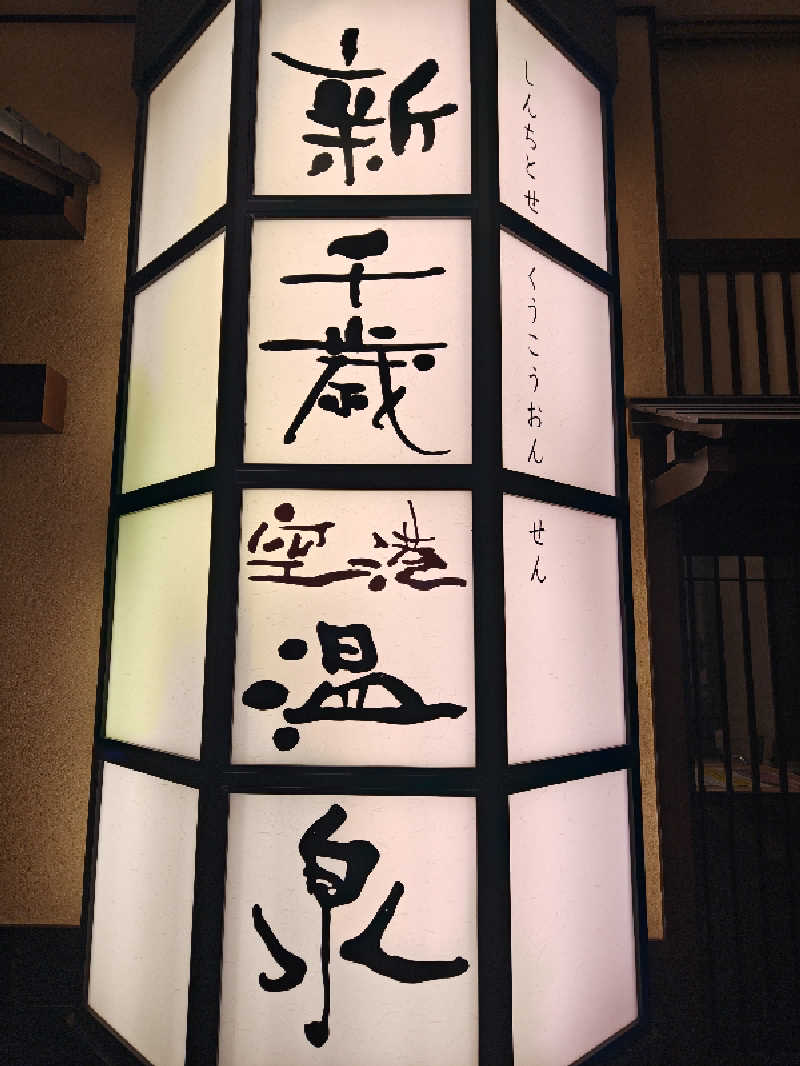 新
千
歳
空港
温
泉
しんちとせ
くうこうおん
せん